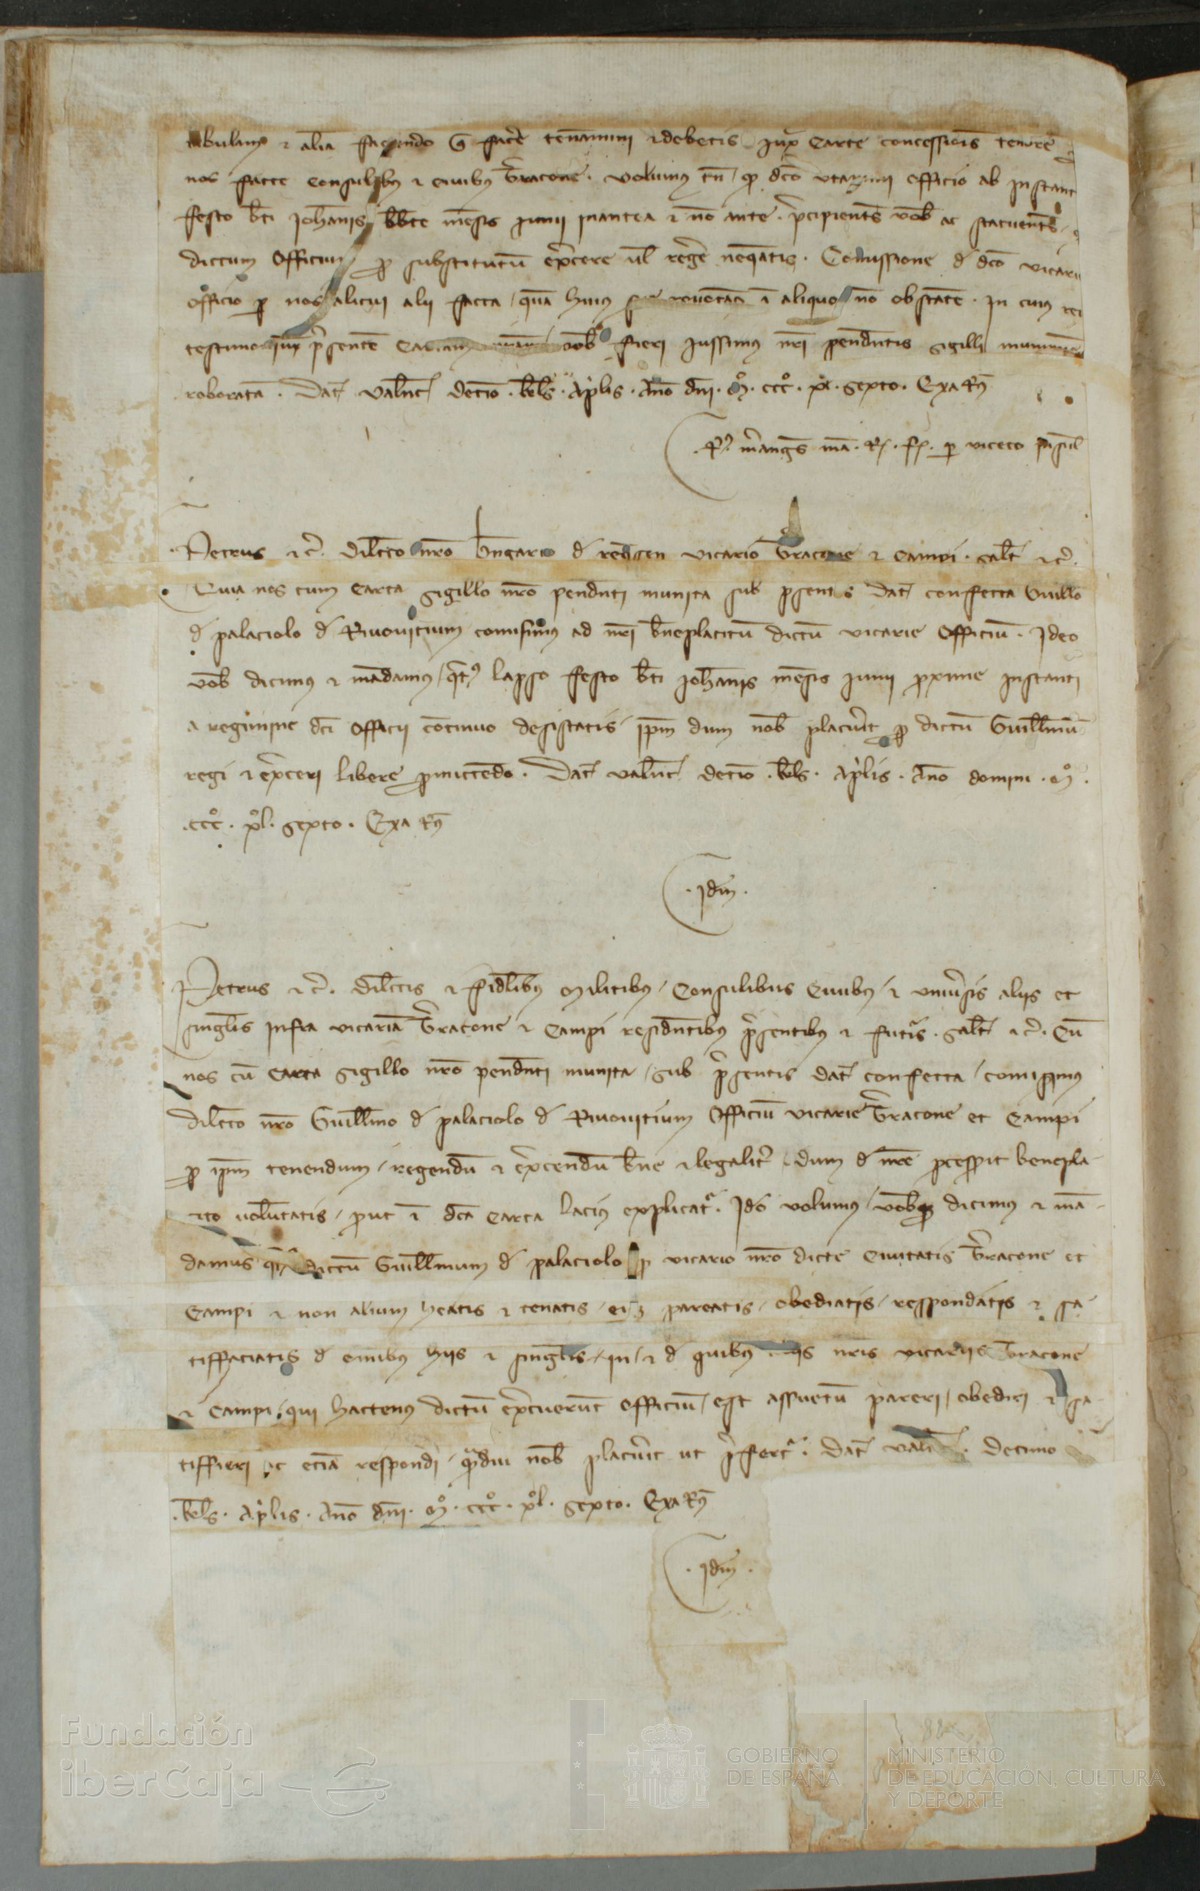 tabulam et aliam faciendo que facere tenamini et debetis iuxta carte concessionis tenorem
nos facte consulibus et civibus Terracone. volumus tamen quod dicto utamini officio ab instanti
festo beati Iohannis mensis iunii inantea et non ante. precipientes vobis ac statuentes
dictum officium per substitutum exercere vel regere nequeatis. Comissione de dicto vicarie
officio per nos alicui alii facta, quam huius revocamus in aliquo non obstante. In cuius rei
testimonium presentem vobis fieri iussimus nostri pendentis sigilli munimine
roboratam. Dat Valencie decimo kalendas Aprilis. Anno domini Mº CCCº xlº sexto. Exa Rs
mandato Regis per
Petrus etc. Dilecto nostro vicario Terracone et Campi. salutem etc.
Quia nos cum carta sigillo nostro pendenti munita sub presentis dat confecta Guillelmo
de palaciolo de comisimus ad nostri beneplacitum dictum vicarie officium. Ideo
vobis dicimus et mandamus, quatenus lapso festo beati Iohannis mensis iunii proxime instanti
a regimine dicti officii continuo desistatis, ipsum dum nobis placuerit per dictum Guillelmum
regi et exerceri libere permittendo. Dat Valencie decimo kalendas Aprilis. Anno domini Mº
CCCº xlº sexto. Exa Rs
Idem.
Petrus etc. Dilectis et fidelibus militibus, Consulibus Civibus, et universis aliis et
singulis infra vicariam Terracone et Campi residentibus presentibus et futuris. salutem etc. Cum
nos cum carta sigillo nostro pendenti munita, sub presentis dat confecta, comisimus
dilecto nostro Guillelmo de palaciolo de officium vicarie Terracone et Campi
per ipsum tenendum, regendum et exercendum bene et legaliter, dum de nostre processerit benepla-
cito voluntatis, prout in dicta carta lacius explicatur. Ideo volumus, vobisque dicimus et man-
damus quatenus dictum Guillelmum de palaciolo pro vicario nostro dicte Civitatis Terracone et
Campi et non alium habeatis et teneatis, eique pareatis, obediatis, respondeatis et sa-
tiffaciatis de omnibus hiis et singulis, in, et de quibus nostris vicariis Terracone
et Campi, qui hactenus dictum exercuerunt officium, est assuetum pareri, obediri et sa-
tiffieri ac etiam responderi, quamdiu nobis placuerit ut prefertur. Dat Valencie. Decimo
kalendas Aprilis. Anno domini Mº CCCº xlº sexto. Exa Rs
Idem.
Fundación
iberCaja
GOBIERNO
DE ESPAÑA
MINISTERIO
DE EDUCACIÓN, CULTURA
Y DEPORTE